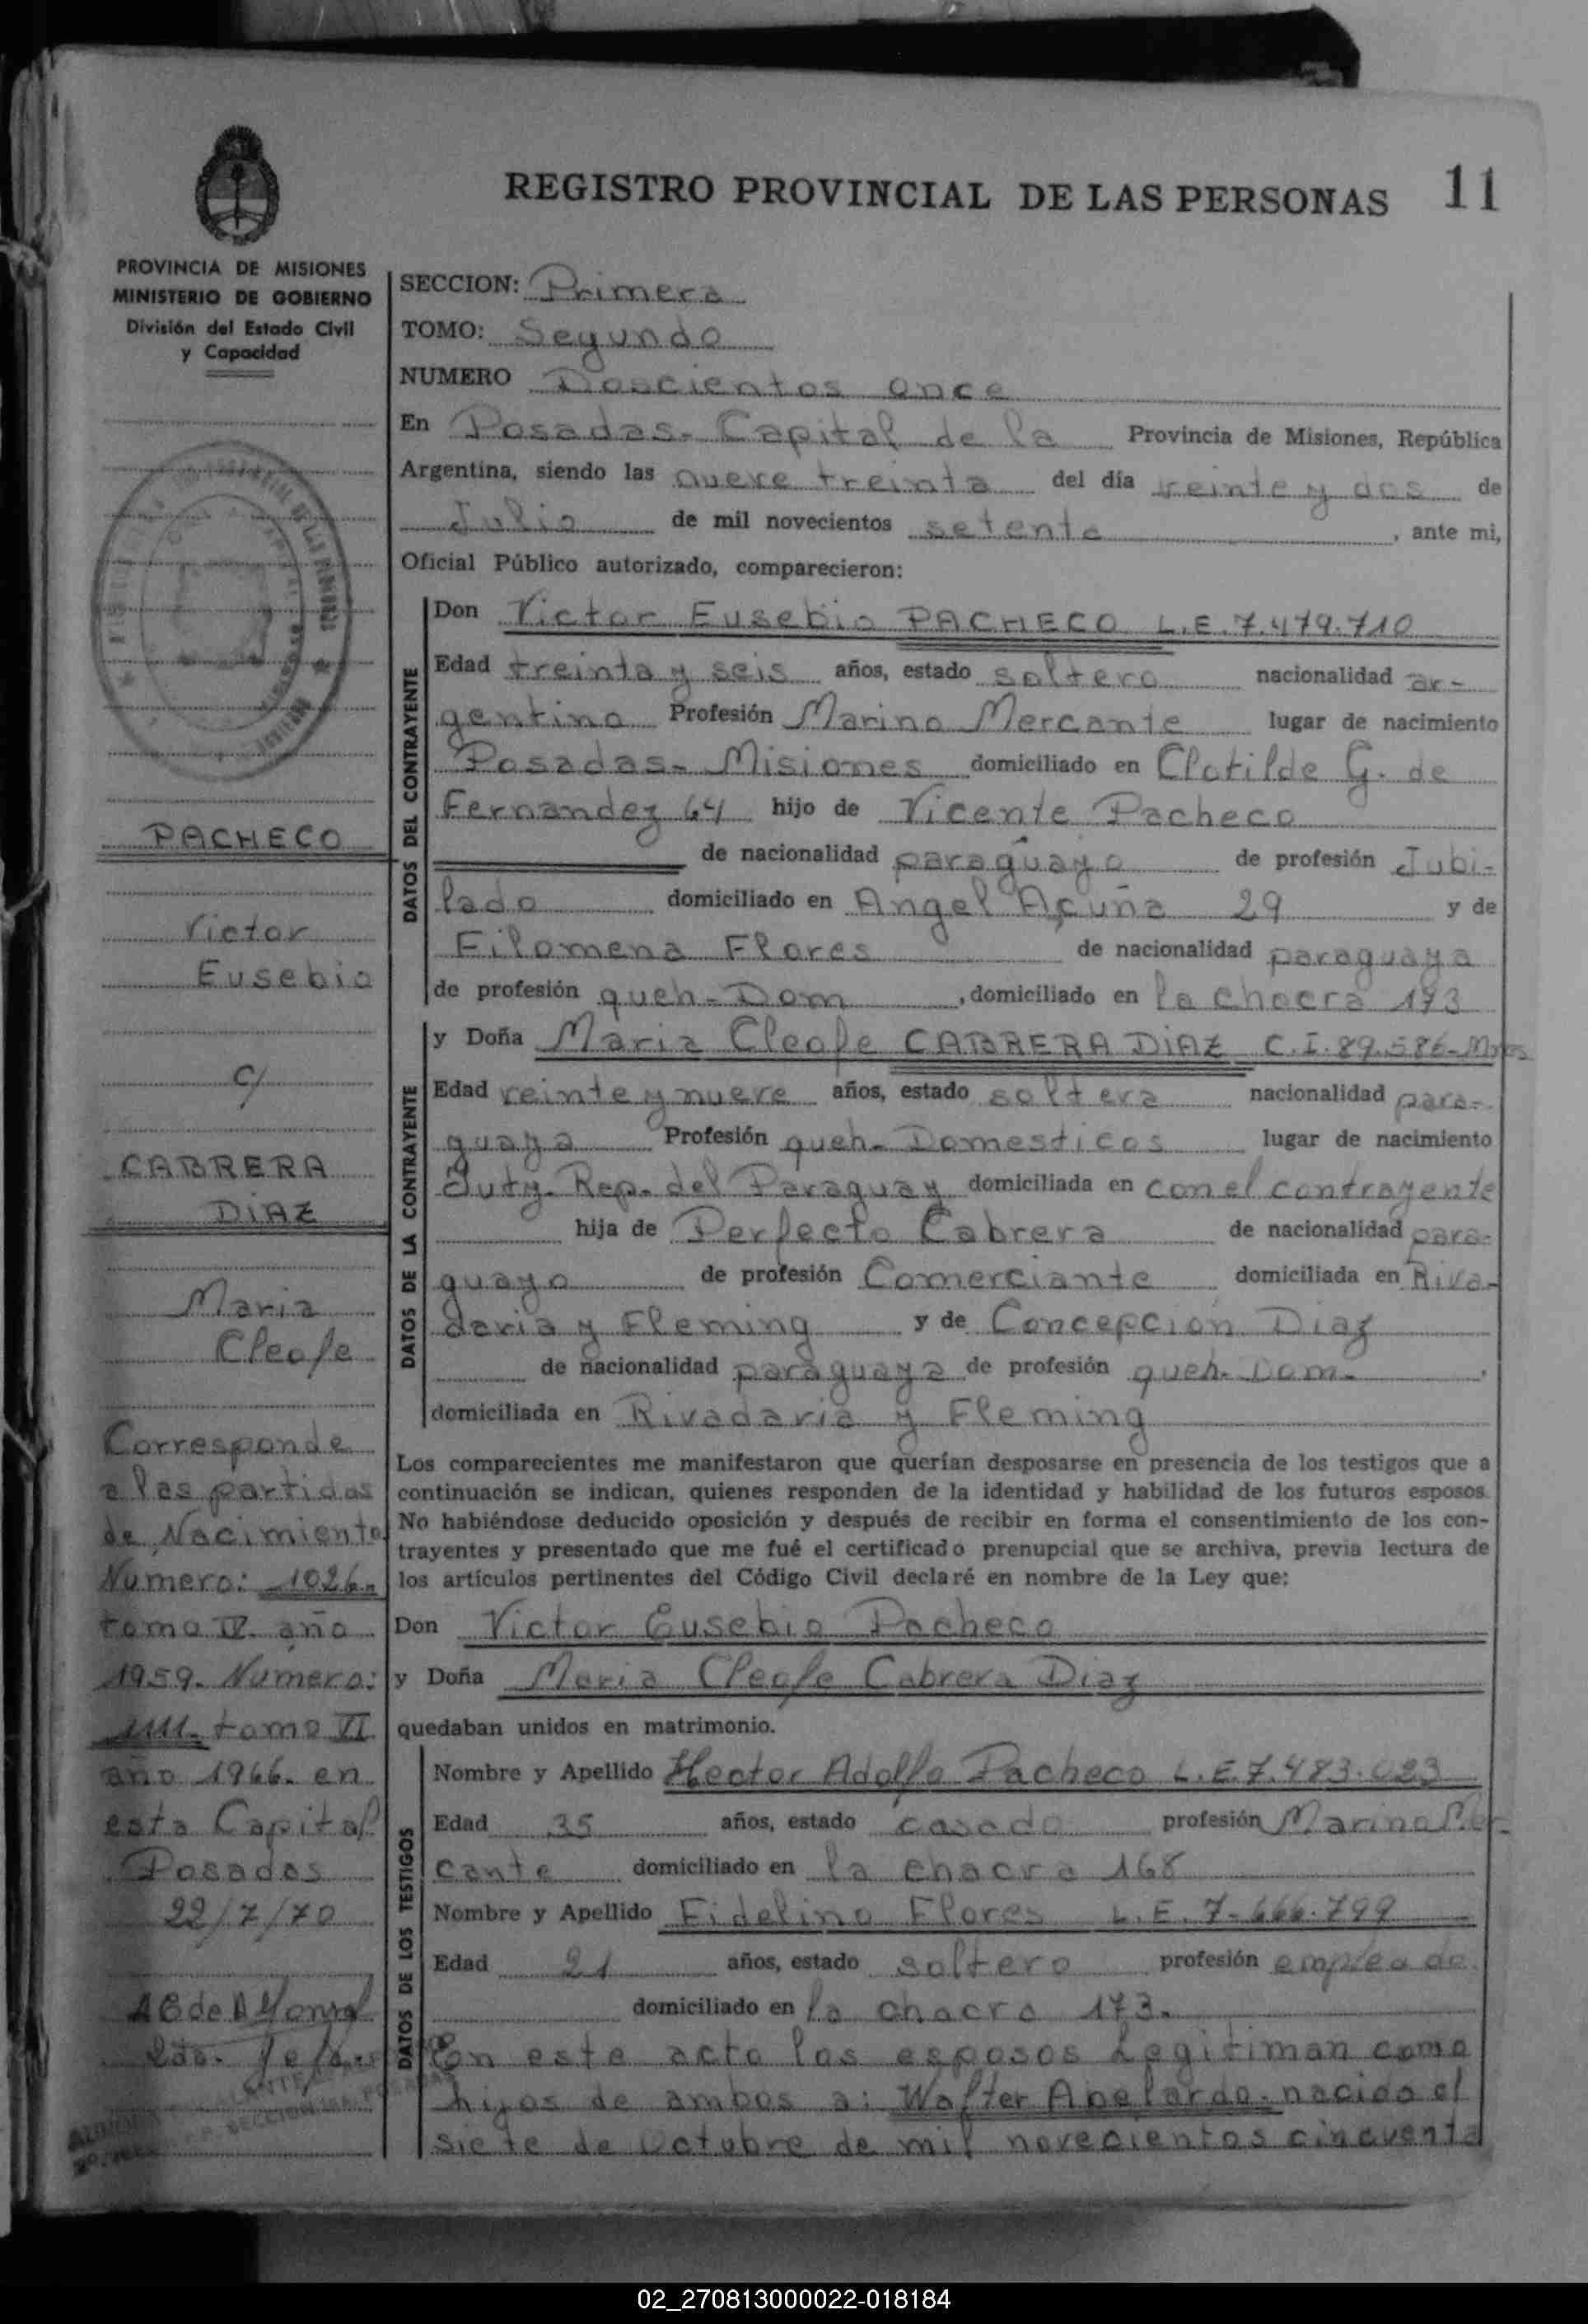 REGISTRO PROVINCIAL DE LAS PERSONAS 11
PROVINCIA DE MISIONES
MINISTERIO DE GOBIERNO
División del Estado Civil
y Capacidad
PACHECO
Victor
Eusebio
c/
CABRERA
DIAZ
Maria
Cleofe
Corresponde
a las partidas
de Nacimiento
Numero: 1026-
tomo IV año
1959. Numero:
1111- tomo VI
año 1966. en
esta Capital
Posadas
22/7/70
SECCION: Primera
TOMO: Segundo
NUMERO Doscientos once
En Posadas- Capital de la Provincia de Misiones, República
Argentina, siendo las nueve treinta del día veinte y dos de
Julio de mil novecientos setenta, ante mi,
Oficial Público autorizado, comparecieron:
DATOS DEL CONTRAYENTE
Don Victor Eusebio PACHECO L.E.7.479.710
Edad treinta y seis años, estado soltero nacionalidad ar-
gentino Profesión Marino Mercante lugar de nacimiento
Posadas- Misiones domiciliado en Clotilde G. de
Fernandez 64 hijo de Vicente Pacheco
de nacionalidad paraguayo de profesión Jubi-
lado domiciliado en Angel Acuña 29 y de
Filomena Flores de nacionalidad paraguaya
de profesión queh-Dom, domiciliado en la chacra 173
DATOS DE LA CONTRAYENTE
y Doña Maria Cleofe CABRERA DIAZ C.I.89.586-Mnes
Edad veinte y nueve años, estado soltera nacionalidad para-
guaya Profesión queh-Domesticos lugar de nacimiento
Yuty-Rep. del Paraguay domiciliada en con el contrayente
hija de Perfecto Cabrera de nacionalidad para-
guayo de profesión Comerciante domiciliada en Riva-
davia y Fleming y de Concepción Diaz
de nacionalidad paraguaya de profesión queh-Dom-.
domiciliada en Rivadavia y Fleming
Los comparecientes me manifestaron que querían desposarse en presencia de los testigos que a
continuación se indican, quienes responden de la identidad y habilidad de los futuros esposos
No habiéndose deducido oposición y después de recibir en forma el consentimiento de los con-
trayentes y presentado que me fué el certificado prenupcial que se archiva, previa lectura de
los artículos pertinentes del Código Civil declaré en nombre de la Ley que:
Don Victor Eusebio Pacheco
y Doña Maria Cleofe Cabrera Diaz
quedaban unidos en matrimonio.
DATOS DE LOS TESTIGOS
Nombre y Apellido Hector Adolfo Pacheco L.E.7.483.023
Edad 35 años, estado casado profesión Marino Mer-
cante domiciliado en la chacra 168
Nombre y Apellido Fidelino Flores L.E. 7-666.799
Edad 21 años, estado soltero profesión empleado
domiciliado en la chacra 173.
En este acto los esposos Legitiman como
hijos de ambos a: Walter Abelardo- nacido el
siete de Octubre de mil novecientos cincuenta
02_270813000022-018184